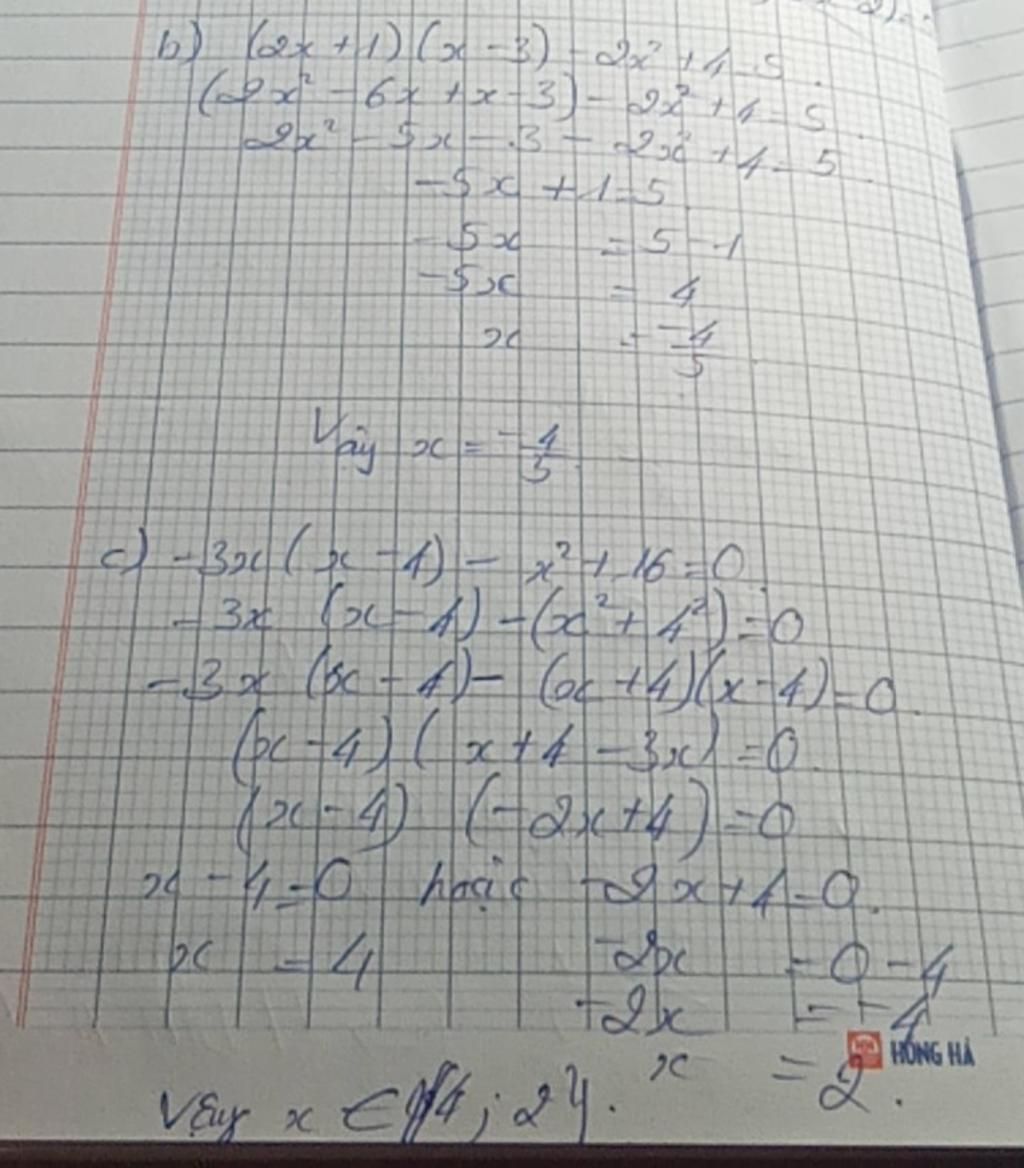 b) (2x + 1) (x - 3) - 2x² + 4 = 5.
(2x² - 6x + x - 3) - 2x² + 4 = 5
2x² - 5x - 3 - 2x² + 4 = 5.
-5x + 1 = 5
-5x = 5 - 1
-5x = 4
x = -4/5
Vậy x = -4/5
c) -3x (x - 4) - x² + 16 = 0
-3x (x - 4) - (x² + 4²) = 0
-3x (x - 4) - (x + 4)(x - 4) = 0.
(x - 4) ( x + 4 - 3x) = 0
(x - 4) (-2x + 4) = 0
x - 4 = 0 hoặc -2x + 4 = 0.
x = 4 -2x = 0 - 4
-2x = -4
HỒNG HÀ
x = 2.
Vậy x ∈ {4; 2}.